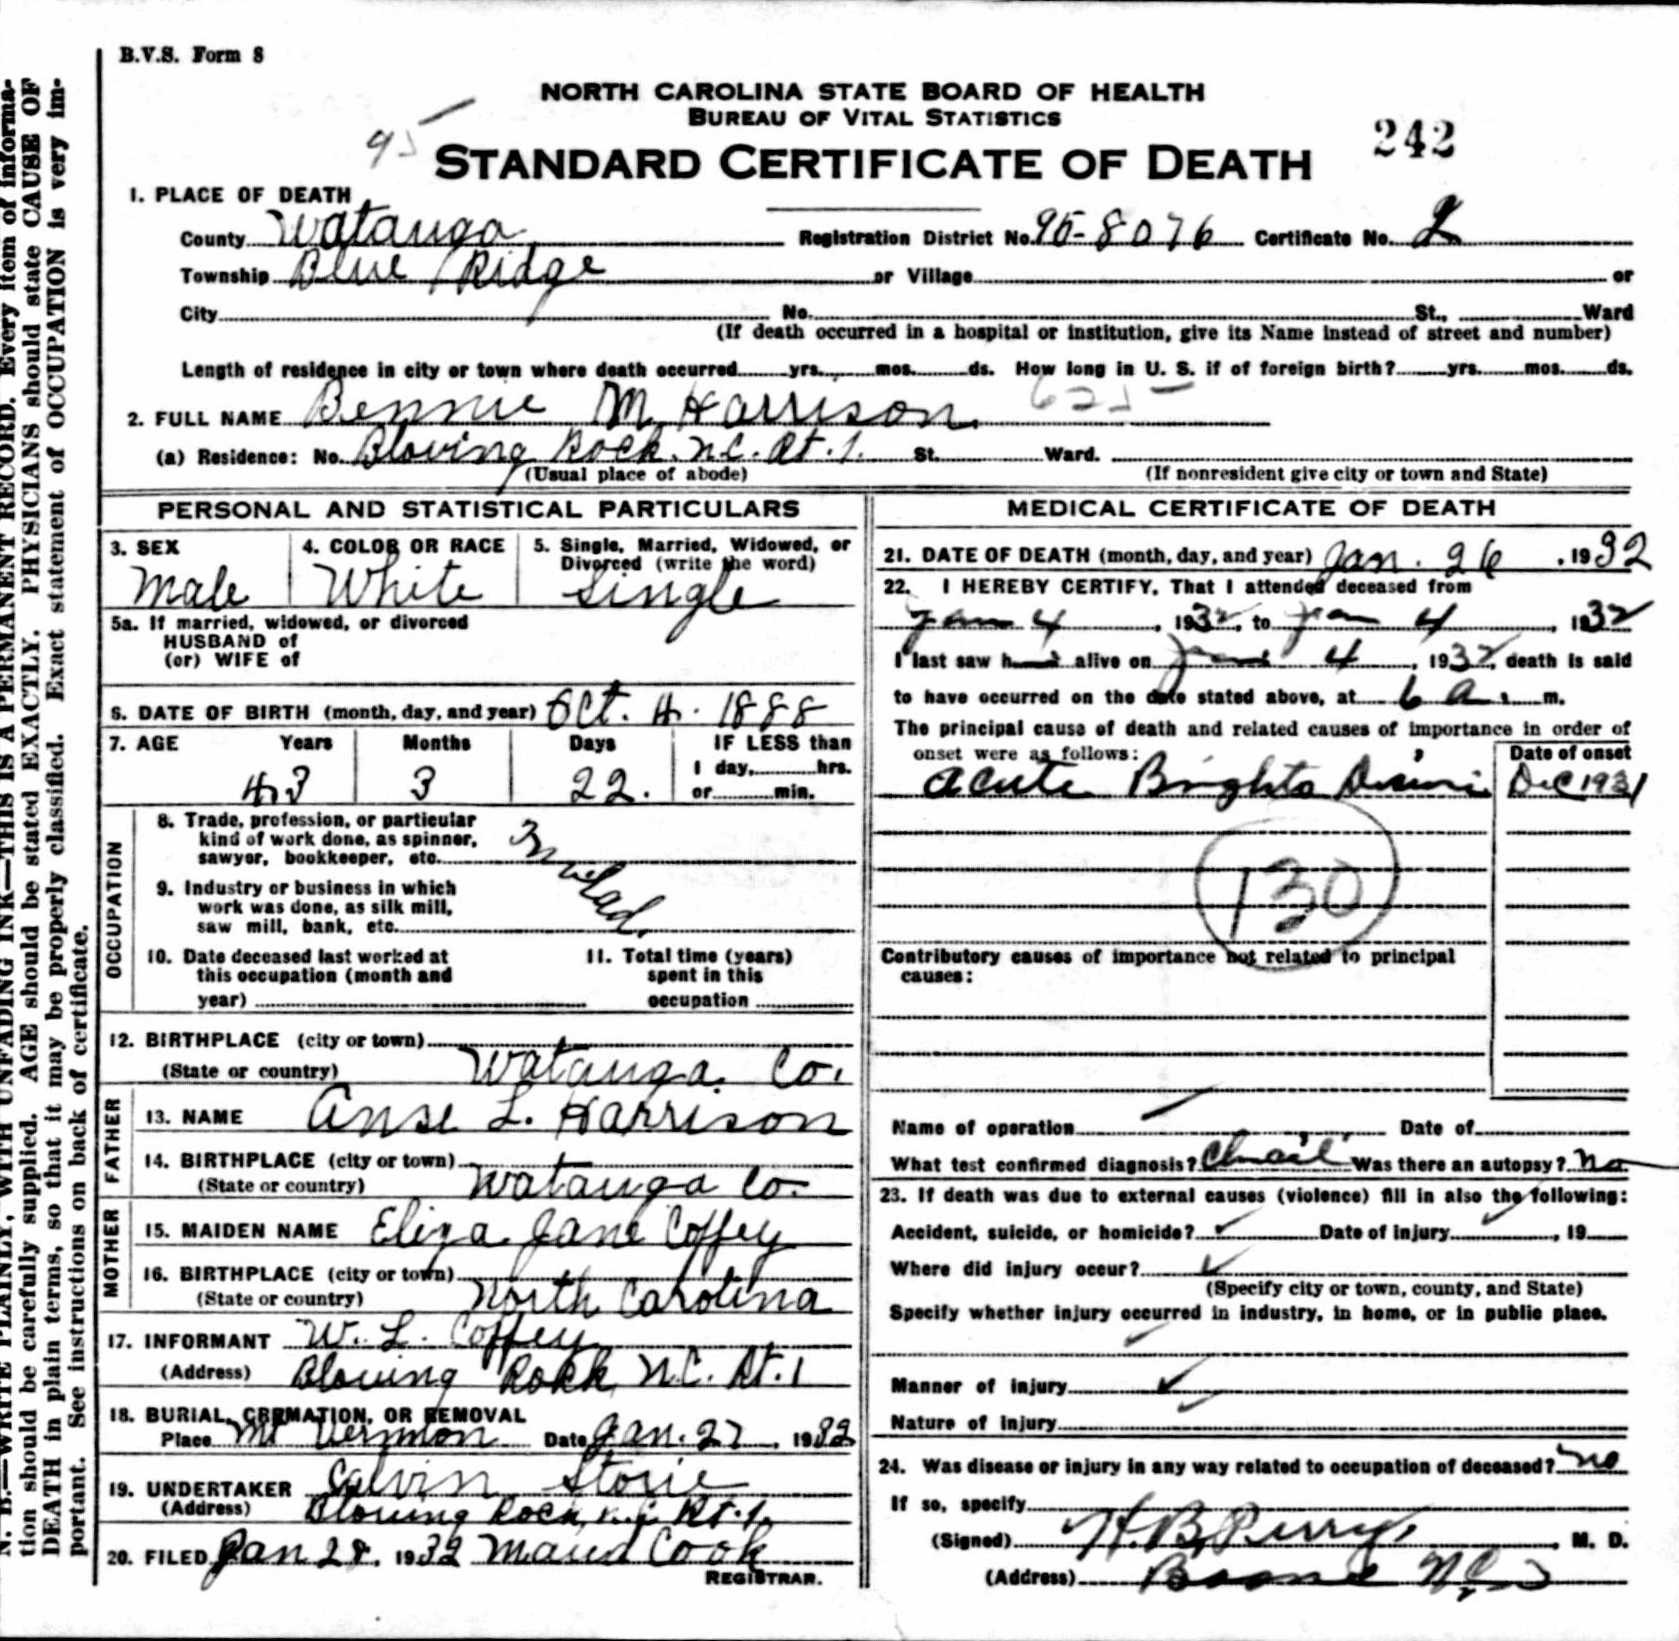 B.V.S. Form 8
NORTH CAROLINA STATE BOARD OF HEALTH
BUREAU OF VITAL STATISTICS
95
STANDARD CERTIFICATE OF DEATH
242
1. PLACE OF DEATH
County Watauga Registration District No. 95-8076 Certificate No. 2
Township Blue Ridge or Village or
City No. St., Ward
(If death occurred in a hospital or institution, give its Name instead of street and number)
Length of residence in city or town where death occurred yrs. mos. ds. How long in U. S. if of foreign birth? yrs. mos. ds.
2. FULL NAME Bennie M Harrison.
(a) Residence: No. Bloving Rock. N.C. Rt. 1. St. Ward.
(Usual place of abode) (If nonresident give city or town and State)
PERSONAL AND STATISTICAL PARTICULARS
3. SEX 4. COLOR OR RACE 5. Single, Married, Widowed, or
Divorced (write the word)
Male White Single
5a. If married, widowed, or divorced
HUSBAND of
(or) WIFE of
6. DATE OF BIRTH (month, day, and year) Oct. 4. 1888
7. AGE Years Months Days IF LESS than
1 day, hrs.
43 3 22. or min.
OCCUPATION
8. Trade, profession, or particular
kind of work done, as spinner,
sawyer, bookkeeper, etc.
9. Industry or business in which
work was done, as silk mill,
saw mill, bank, etc.
10. Date deceased last worked at 11. Total time (years)
this occupation (month and spent in this
year) occupation
12. BIRTHPLACE (city or town)
(State or country) Watauga. Co.
FATHER
13. NAME Anse L. Harrison
14. BIRTHPLACE (city or town)
(State or country) Watauga Co.
MOTHER
15. MAIDEN NAME Eliza Jane Coffey
16. BIRTHPLACE (city or town)
(State or country) North Carolina
17. INFORMANT W. L. Coffey
(Address) Blowing Rock, N.C. Rt. 1
18. BURIAL, CREMATION, OR REMOVAL
Place Mt Vernnon Date Jan. 27, 1932
19. UNDERTAKER Calvin Storie
(Address) Blowing Rock, N.C. Rt. 1.
20. FILED Jan 28. 1932 Maud Cook
REGISTRAR.
MEDICAL CERTIFICATE OF DEATH
21. DATE OF DEATH (month, day, and year) Jan. 26, 1932
22. I HEREBY CERTIFY, That I attended deceased from
Jan 4, 1932, to Jan 4, 1932
I last saw h alive on 4, 1932, death is said
to have occurred on the date stated above, at 6 a. m.
The principal cause of death and related causes of importance in order of
onset were as follows: Date of onset
Acute Brights Dec 1931
130
Contributory causes of importance not related to principal
causes:
Name of operation Date of
What test confirmed diagnosis? Was there an autopsy? No
23. If death was due to external causes (violence) fill in also the following:
Accident, suicide, or homicide? Date of injury , 19
Where did injury occur?
(Specify city or town, county, and State)
Specify whether injury occurred in industry, in home, or in public place.
Manner of injury
Nature of injury
24. Was disease or injury in any way related to occupation of deceased? no
If so, specify
(Signed) H. B. Perry, M. D.
(Address) Boone N.C.
N. B.—WRITE PLAINLY, WITH UNFADING INK—THIS IS A PERMANENT RECORD. Every item of informa-
tion should be carefully supplied. AGE should be stated EXACTLY. PHYSICIANS should state CAUSE OF
DEATH in plain terms, so that it may be properly classified. Exact statement of OCCUPATION is very im-
portant. See instructions on back of certificate.